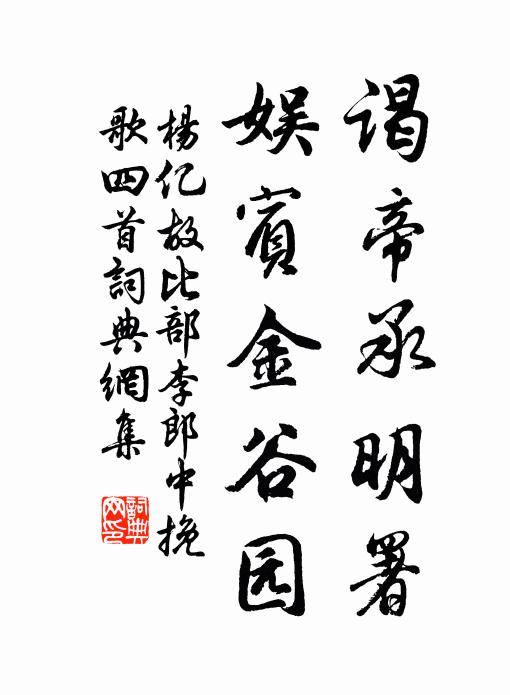 谒帝承明署
娱賓金谷园
楊亿故比部李郎中挽
歌四首詞典網集
詞典
网印